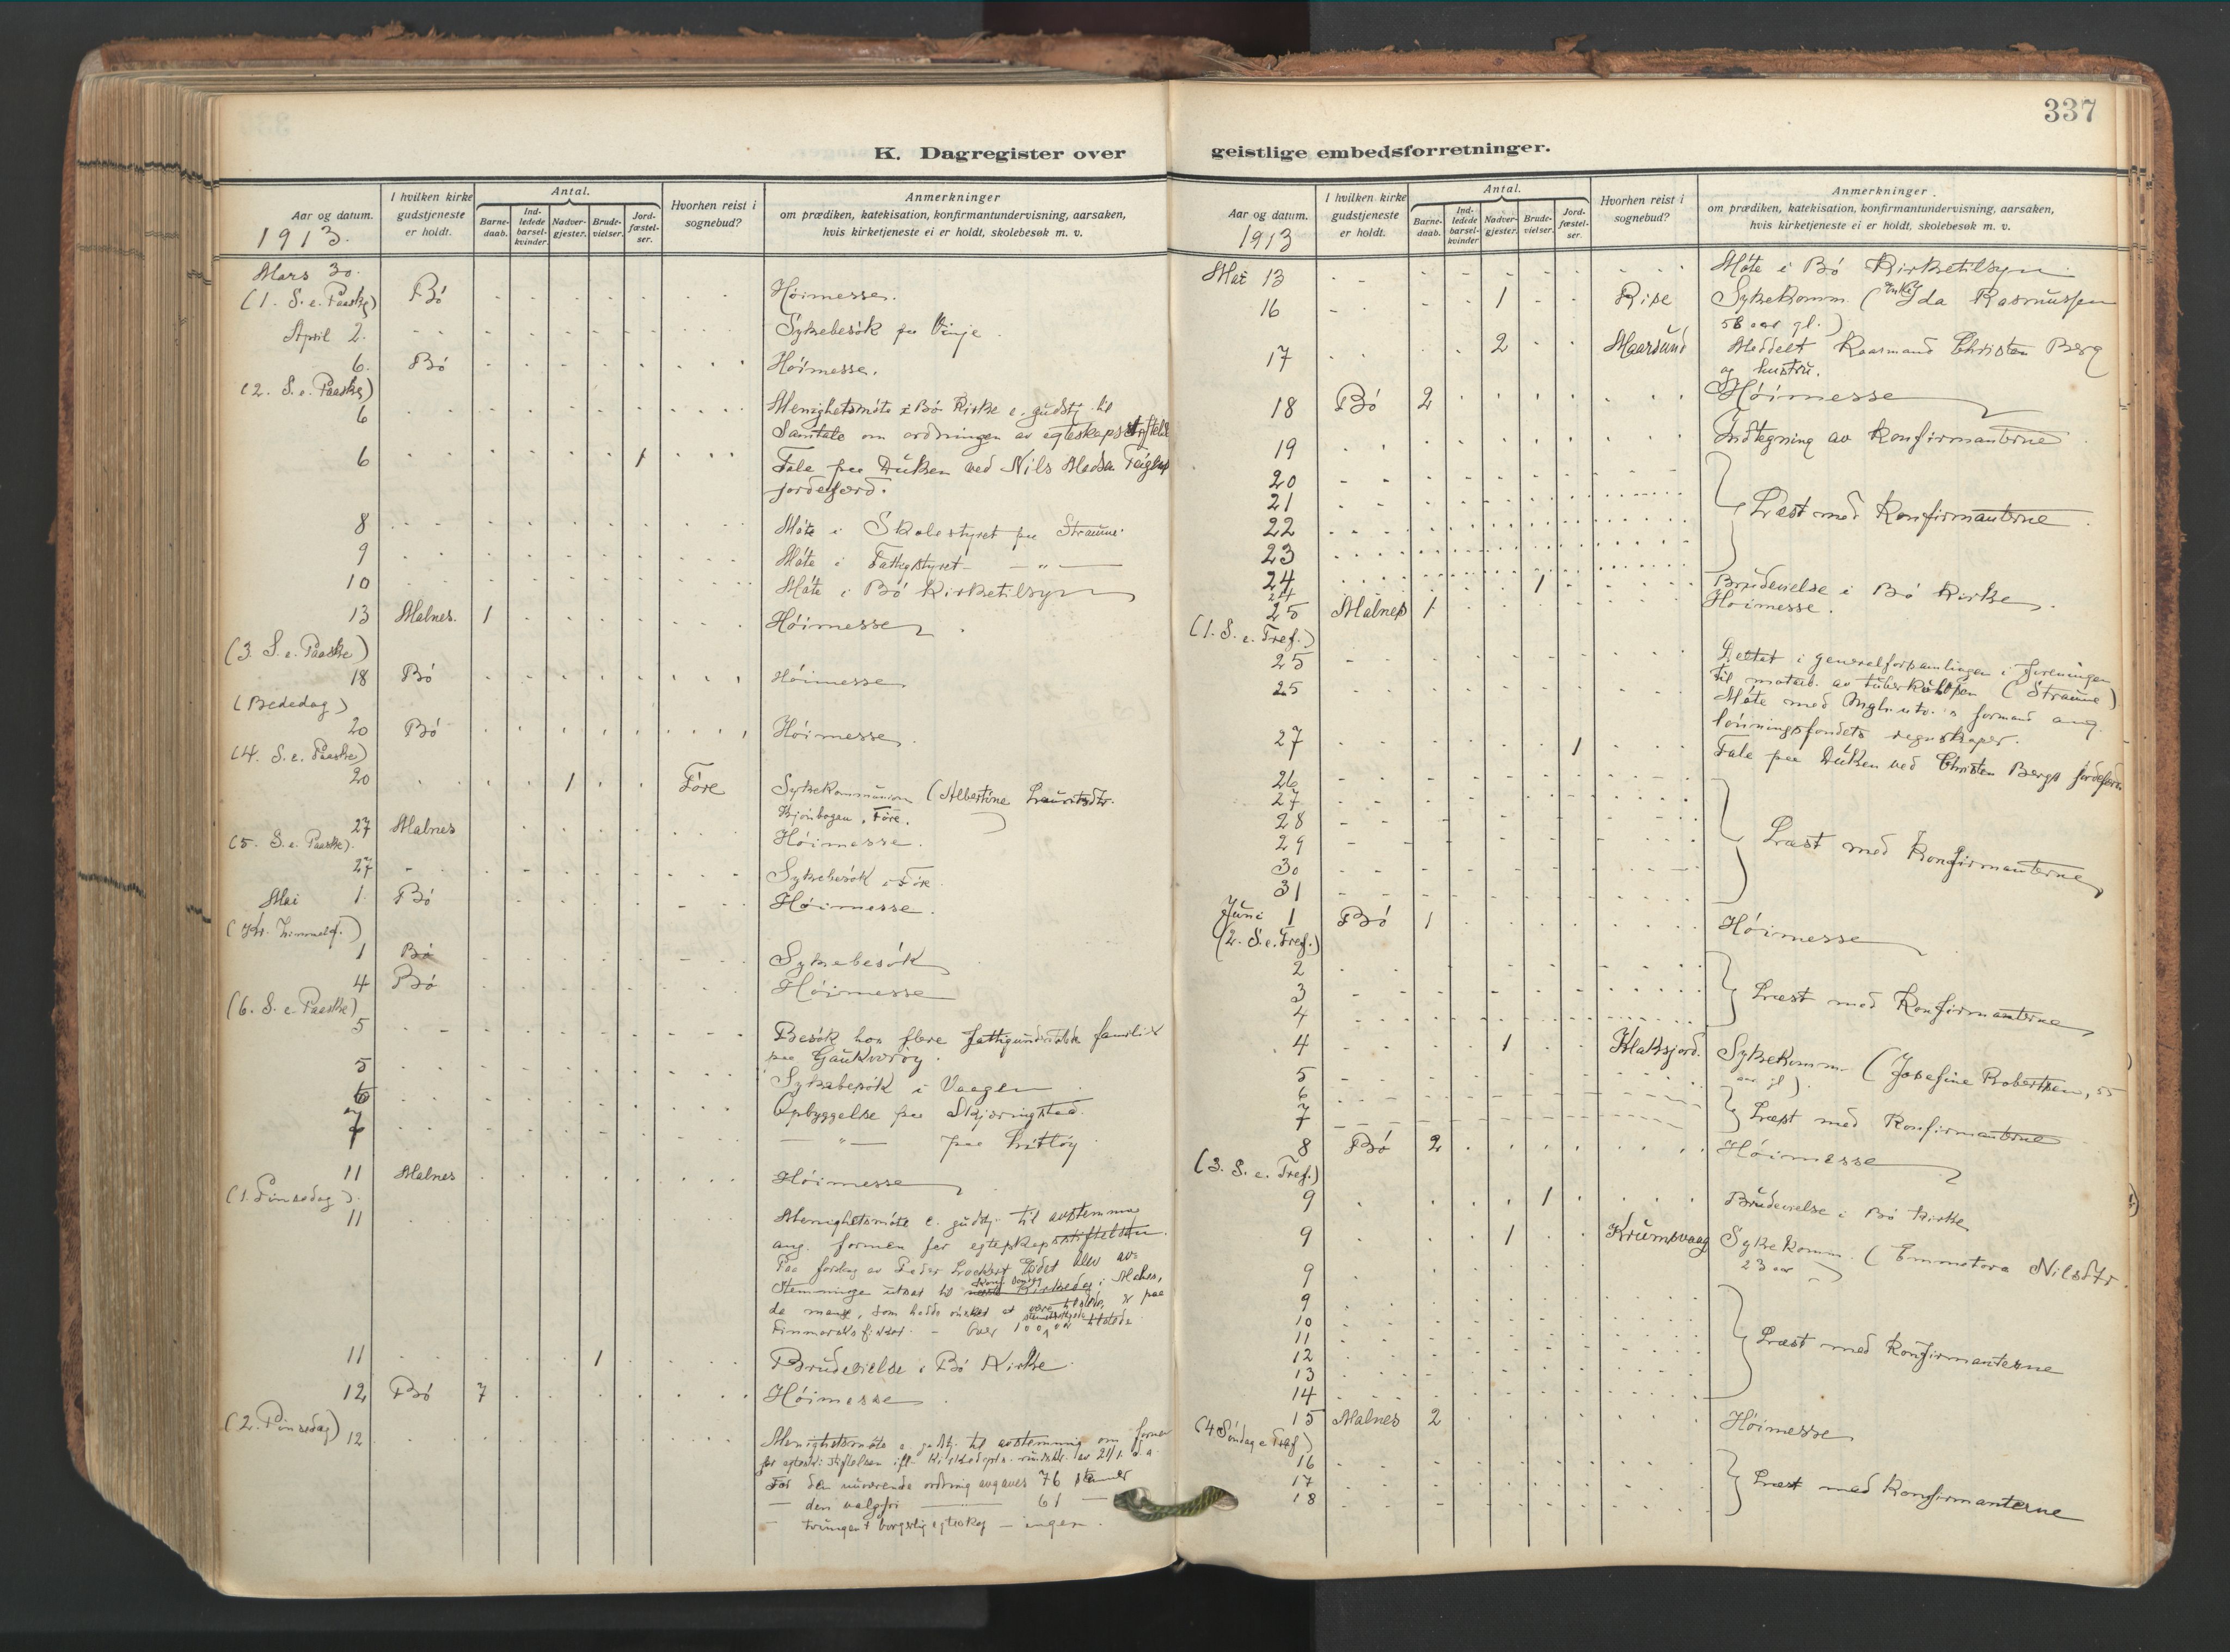 337
K. Dagregister over
geistlige embedsforretninger.
Aar og datum.
1913.
I hvilken kirke gudstjeneste er holdt.
Antal.
Barne-daab.
Ind-ledede barsel-kvinder.
Nadver-gjester.
Brude-vielser.
Jord-fæstel-ser.
Hvorhen reist i sognebud?
Anmerkninger
om prædiken, katekisation, konfirmantundervisning, aarsaken,
hvis kirketjeneste ei er holdt, skolebesøk m. v.
Mars 30.
(1. S. e. Paaske) Bö Höimesse.
April 2. Sykebesök paa Vinje
6. Bö Höimesse.
(2. S. e. Paaske)
6 Menighetsmöte i Bö Kirke e. gudstj. til
Samtale om ordningen av egteskaps
6 1 Tale paa Duken ved Nils
jordefærd.
8 Möte i Skolestyret paa Straume
9 Möte i Fattigstyret — „ —
10 Möte i Bö Kirketilsyn
13 Malnes. 1 Höimesse
(3 S. e. Paaske)
18 Bö Höimesse
(Bededag)
20 Bö Höimesse.
(4. S. e. Paaske)
20 1 Före Sykekommunion (Albertine
Före.
27 Malnes Höimesse.
(5. S. e. Paaske).
27 Sykebesök i Före
Mai 1. Bö Höimesse.
(Kr. himmelf.)
1 Bö Sykebesök
4 Bö Höimesse
(6. S. e. Paaske)
5 Besök hos flere familier
paa Gaukværöy.
5 Sykebesök i Vaagen
6 Opbyggelse paa Skjæringstad.
og
7 — „ — paa Litlöy
11 Malnes Höimesse
(1. Pinsedag).
11 Menighetsmöte e. gudstj. til avstemma
ang. formen for
Paa forslag av Peder blev av-
stemninge utsat til
de mange, som hadde önsket at være tilstede, er paa
Finmarksfisket. —
11 1 Brudevielse i Bö Kirke
12 Bö 7 Höimesse
(2. Pinsedag)
12 Menighetsmöte e. gudstj. til avstemning om formen
for
For den nuværende ordning avgaves 76 stemmer
— den valgfri — 61 —
— tvungen borgerlig egteskap — ingen.
Aar og datum.
1913
I hvilken kirke gudstjeneste er holdt.
Antal.
Barne-daab.
Ind-ledede barsel-kvinder
Nadver-gjester.
Brude-vielser.
Jord-fæstel-ser.
Hvorhen reist i sognebud?
Anmerkninger.
om prædiken, katekisation, konfirmantundervisning, aarsaken,
hvis kirketjeneste ei er holdt, skolebesøk m. v.
Mai 13 Möte i Bö Kirketilsyn
16 1 Rise Sykekomm. (enke Ida Rasmussen
58 aar gl.)
17 2 Maarsund Meddelt Kaarmand Christen Berg
og hustru.
18 Bö 2 Höimesse
19 Indtegning av Konfirmanterne
20
21 Læst med Konfirmanterne
22
23
24 1 Brudevielse i Bö Kirke
25 Malnes 1 Höimesse.
(1. S. e. Tref.)
25 Deltat i generalforsamlingen i foreningen
til motarb. av tuberkulosen (Straume)
25 Möte med formand ang.
lönningsfondets regnskaper.
27 1 Tale paa Duken ved Christen Bergs jordefærd
26
27
28 Læst med Konfirmanterne
29
30
31
Juni 1 Bö 1 Höimesse
(2. S. e. Tref.)
2
3 Læst med Konfirmanterne
4
4 1 Klaksjord. Sykekomm. (Josefine Robertsen, 55
aar gl).
5
6 Læst med Konfirmanterne
7
8 Bö 2 Höimesse
(3. S. e. Tref.)
9 1 Brudevielse i Bö Kirke
9 1 Krumsvaag Sykekomm. (Emmetora Nilsdtr.
23 aar)
9
9
10
11 Læst med Konfirmanterne
12
13
14
15 Malnes 2 Höimesse
(4 Söndag e Tref)
16
17 Læst med Konfirmanterne
18